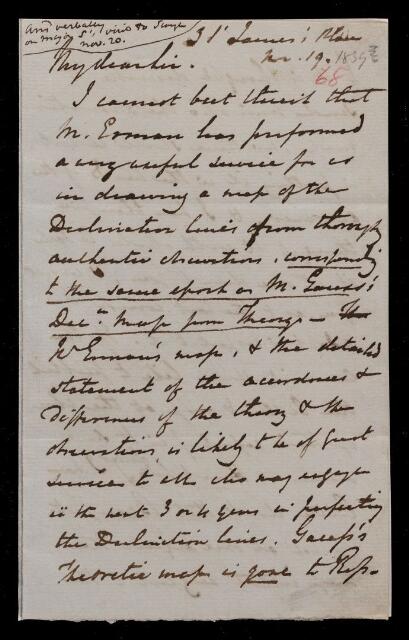 Ansd verbally
on Major S's visit to
Nov. 20.
31 St James's Place
Nov. 19. 1839
68
My dear Sir.
I cannot but think that
M. Erman has performed
a very useful service for us
in drawing a map of the
Declination lines from thoroughly
authentic observations, corresponding
to the same epoch as M. Gauss's
Decn. map from Theory. —
Mr Erman's map, & the detailed
statement of the accordances &
differences of the theory & the
observations, is likely to be of great
service to all who may engage
in the next 3 or 4 years in perfecting
the Declination lines. Gauss's
Theoretic map is gone to Press.